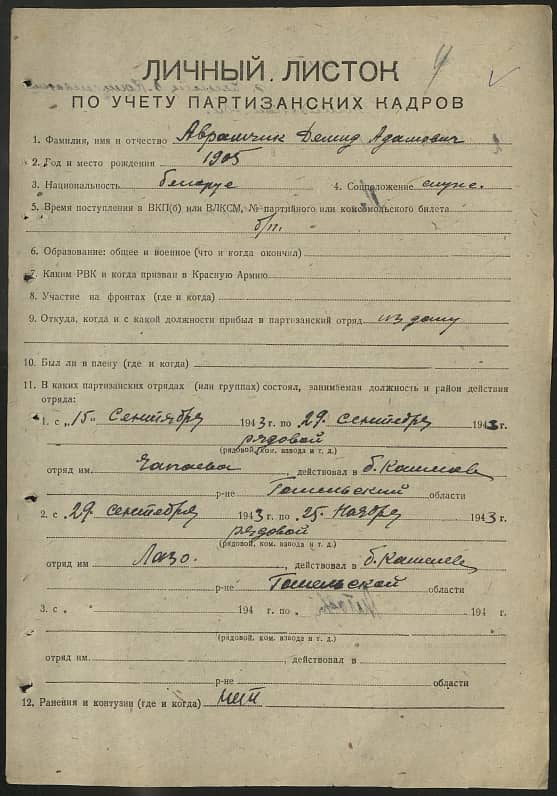 ЛИЧНЫЙ ЛИСТОК
ПО УЧЕТУ ПАРТИЗАНСКИХ КАДРОВ
1. Фамилия, имя и отчество Аврамчик Демид Адамович
2. Год и место рождения 1905
3. Национальность беларус 4. Соцположение служ.
5. Время поступления в ВКП(б) или ВЛКСМ, № партийного или комсомольского билета
б/п.
6. Образование: общее и военное (что и когда окончил)
7. Каким РВК и когда призван в Красную Армию
8. Участие на фронтах (где и когда)
9. Откуда, когда и с какой должности прибыл в партизанский отряд из дому
10. Был ли в плену (где и когда)
11. В каких партизанских отрядах (или группах) состоял, занимаемая должность и район действия
отряда:
1. с „15" Сентября 1943 г. по 29 Сентебря 1943 г.
рядовой
(рядовой, ком. взвода и т. д.)
отряд им. Чапаева, действовал в б.Кошелев
р-не Гомельский области
2. с 29 сентебря 1943 г. по 25 Ноября 1943 г.
рядовой
(рядовой, ком. взвода и т. д.)
отряд им. Лазо., действовал в б.Кошелев
р-не Гомельской области
3. с 194 г. по 194 г.
(рядовой, ком. взвода и т. д.)
отряд им., действовал в
р-не области
12. Ранения и контузии (где и когда) нет